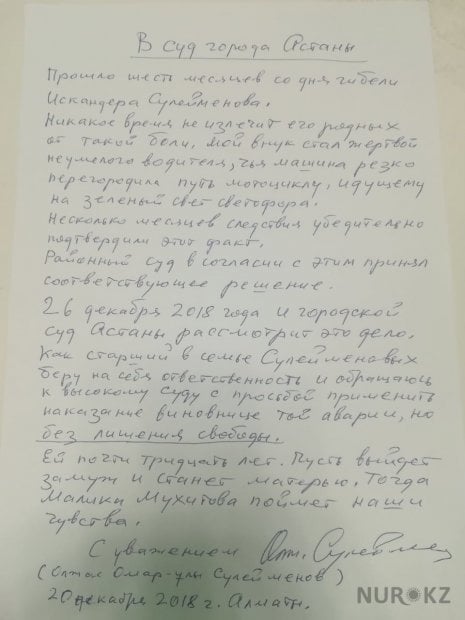 В суд города Астаны
Прошло шесть месяцев со дня гибели
Искандера Сулейменова.
Никакое время не излечит его родных
от такой боли, мой внук стал жертвой
неумелого водителя, чья машина резко
перегородила путь мотоциклу, идущему
на зеленый свет светофора.
Несколько месяцев следствия убедительно
подтвердили этот факт.
Районный суд в согласии с этим принял
соответствующее решение.
26 декабря 2018 года и городской
суд Астаны рассмотрит это дело.
Как старший в семье Сулейменовых
беру на себя ответственность и обращаюсь
к высокому суду с просьбой применить
наказание виновнице той аварии, но
без лишения свободы.
Ей почти тридцать лет. Пусть выйдет
замуж и станет матерью. Тогда
Малика Мухитова поймет наши
чувства.
С уважением Олж. Сулеймен
(Олжас Омар-улы Сулейменов)
20 декабря 2018 г. Алматы.
NUR.KZ